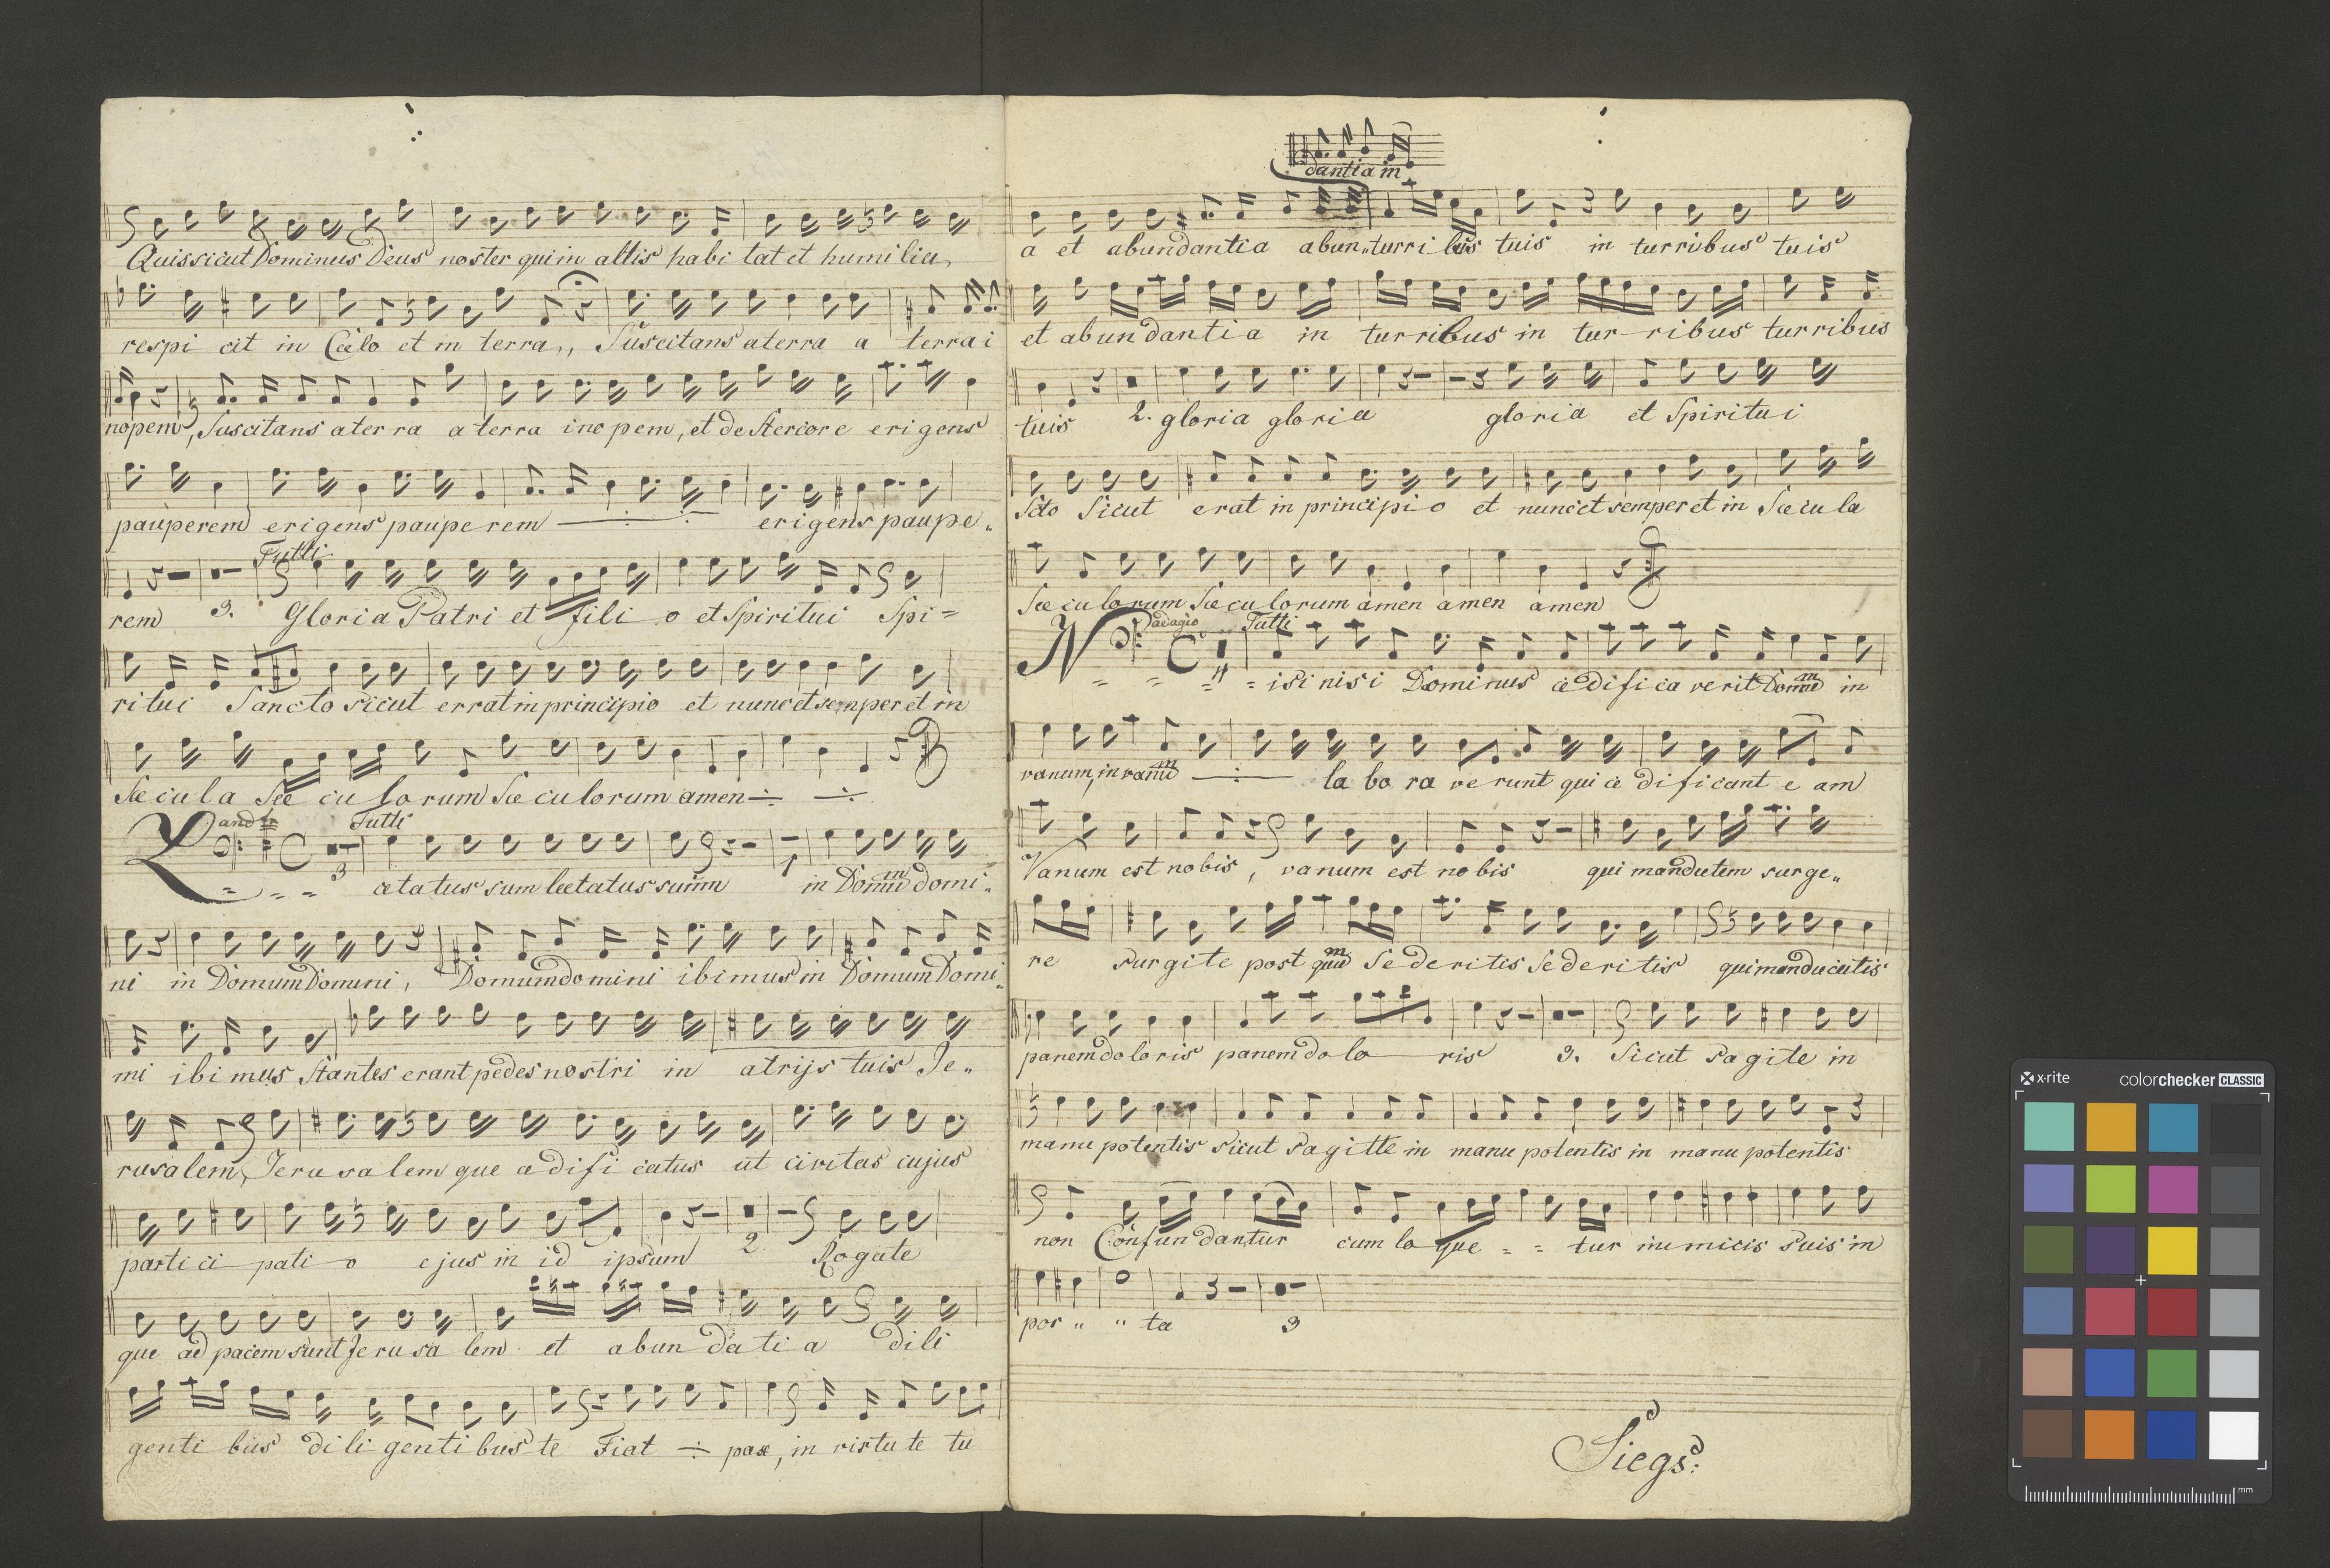 Quis sicut Dominus Deus noster qui in altis habi tat et humilia,
respi cit in Cœlo et in terra,, Suscitans a terra a terra i
nopem, Suscitans a ter ra a terra ino pem, et de Stercore erigens
pauperem erigens paupe rem ÷ erigens paupe„
Tutti
rem 3. Gloria Patri et fili o et Spiritui Spi=
ritui Sancto sicut errat in principio et nunc et semper et in
Sæ cu la Sæ cu lo rum Sæ cu lorum amen ÷ ÷
L andte Tutti
3 ætatus sum lætatus sum in 1 in Domu̅m domi„
ni in Domum Domini, Domum do mini ibimus in Domum Domi„
mi ibi mus Stantes erant pedes nostri in atrijs tuis Je„
rusalem, Jeru sa lem que ædifi catus ut civitas cujus
parti ci pati o ejus in id ipsum 2 Rogate
que ad pacem sunt Je ru sa lem et abun da ti a dili
genti bus dili genti bus te Fiat ÷ pax, in virtu te tu
dantia in
a et abundantia abun„ turri bus tuis in turribus tuis
et abun dantia in turribus in tur-ribus turribus
tuis 2. gloria gloria gloria et Spiritui
Scto Sicut erat in principi o et nunc et semper et in Sæ cu la
Sæ cu lorum Sæ cu lorum amen amen amen
N adagio Tutti
4 = isi nisi Dominus ædifi ca verit Domu̅m in
vanum, in vanu̅m ÷ la bo ra ve runt qui ædificant e am
Vanum est nobis, vanum est no bis qui mandutem surge„
re surgite post qua̅m Se deritis Se deritis qui manducatis
panem doloris panem do lo ris 3. Sicut sagite in
manu potentis sicut sagitte in manu potentis in manu potentis
non Confun dantur cum lo que = = tur inimicis suis in
por „ „ ta 3
Siegs:
x·rite colorchecker CLASSIC
mm